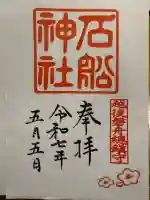 石船
神社
奉拝
令和七年
五月五日